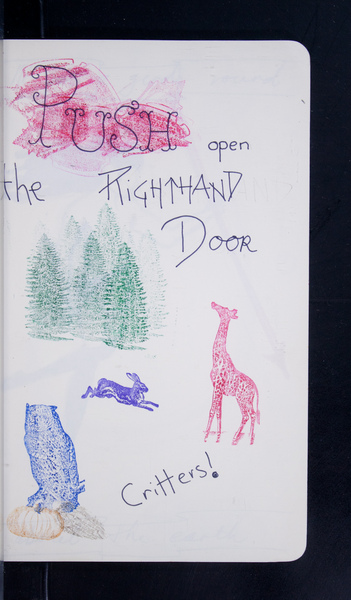 PUSH
open
the RIGHTHAND
DOOR
Critters!